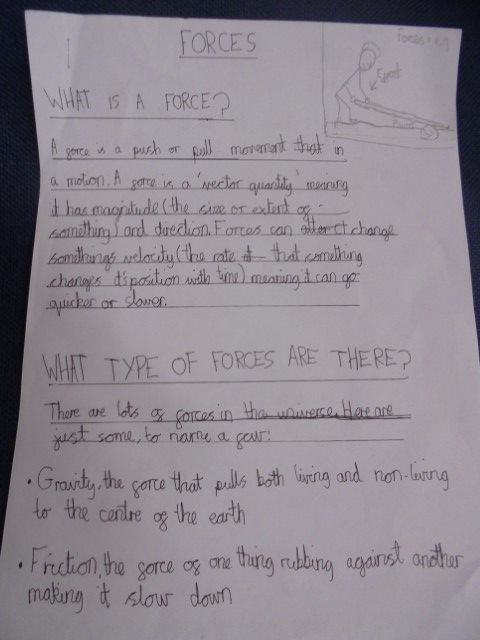 FORCES
Forces: e.g
Effort
WHAT IS A FORCE?
A force is a push or pull movement that in
a motion. A force is a 'vector quantity' meaning
it has magnitude (the size or extent of
something) and direction. Forces can change
somethings velocity (the rate that something
changes it's position with time) meaning it can go
quicker or slower.
WHAT TYPE OF FORCES ARE THERE?
There are lots of forces in the universe. Here are
just some, to name a few:
• Gravity, the force that pulls both living and non-living
to the centre of the earth
• Friction, the force of one thing rubbing against another
making it slow down